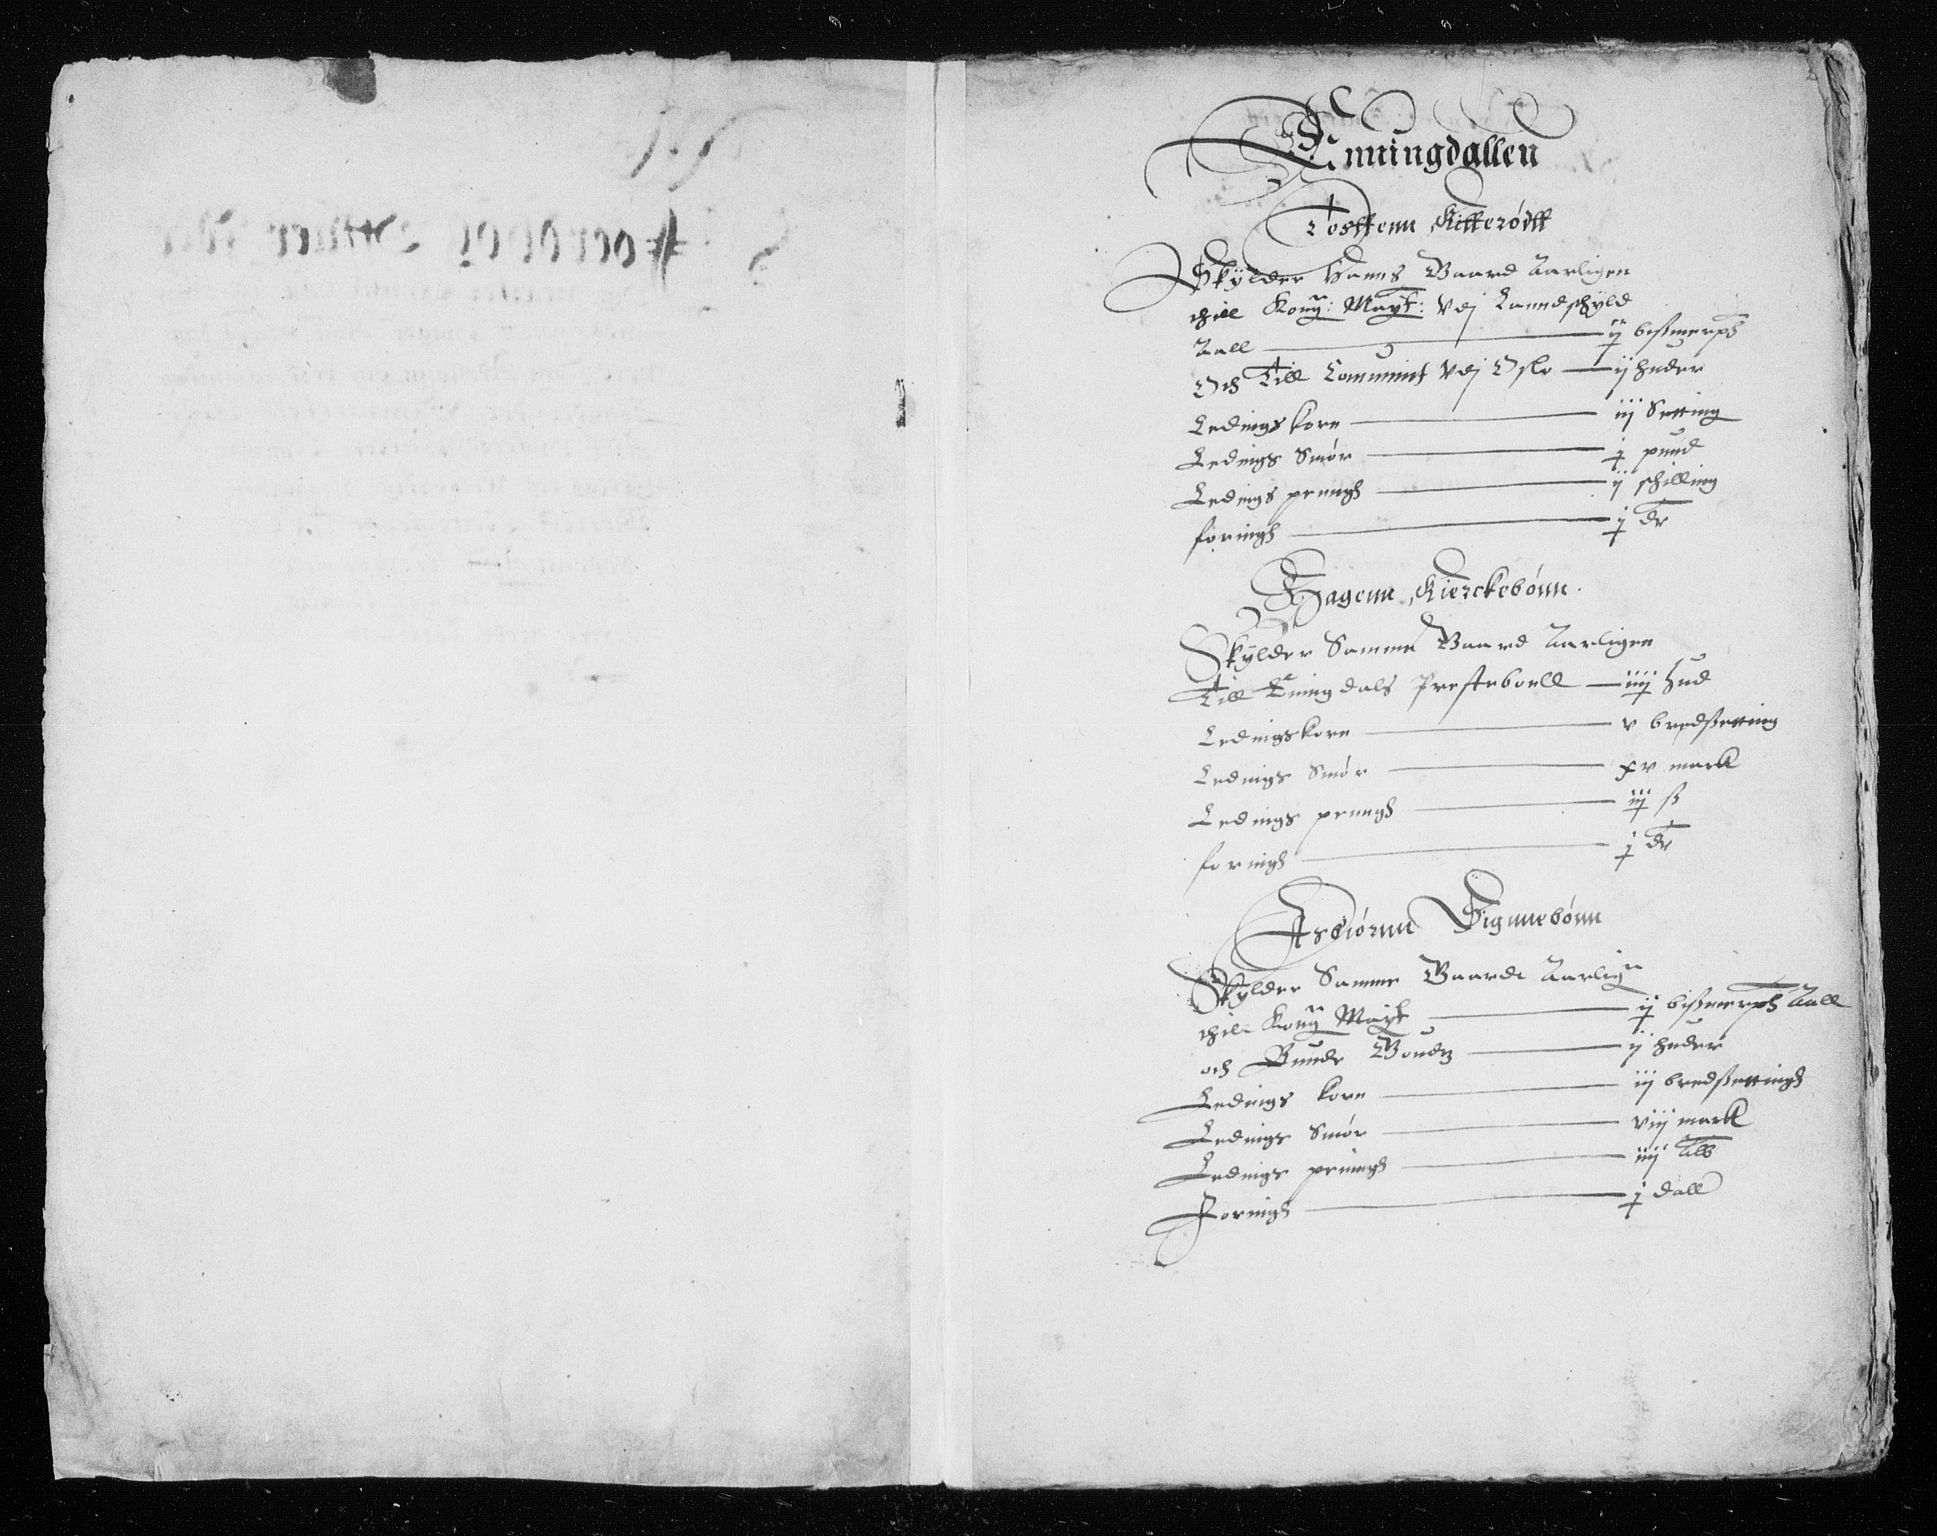 Enningdallen
Tostenn Kitterødtt
Skylder Hanns Gaard Aarligen
thill Kong: Mayt: Vdj Lanndschyld
Aall — ij bißmerpd
Och Till Communit Vdj Oslo — ij huder
Ledings korn — iij Setting
Ledings Smør — j pund
Ledings penngh — ij schilling
foringh — j dr
Hagenn Kierckebönn.
Skylder Samme Gaard Aarligen
Till Eningdals Presteboell — iiij hud
Ledingskorn — v bredßetting
Ledings Smør — xv mark
Ledings penngh — iij ß
foringh — j dr
Asbiørnn Signnebönn
Skylder Samme Gaardt Aarligen
thil Kong Mayt — ij bißmerpd Aall
och Bunde Goudz — ij huder
Ledings korn — iij bredßettingh
Ledings Smør — viij mark
Ledings penngh — iiij Alb
Foringh — j dall